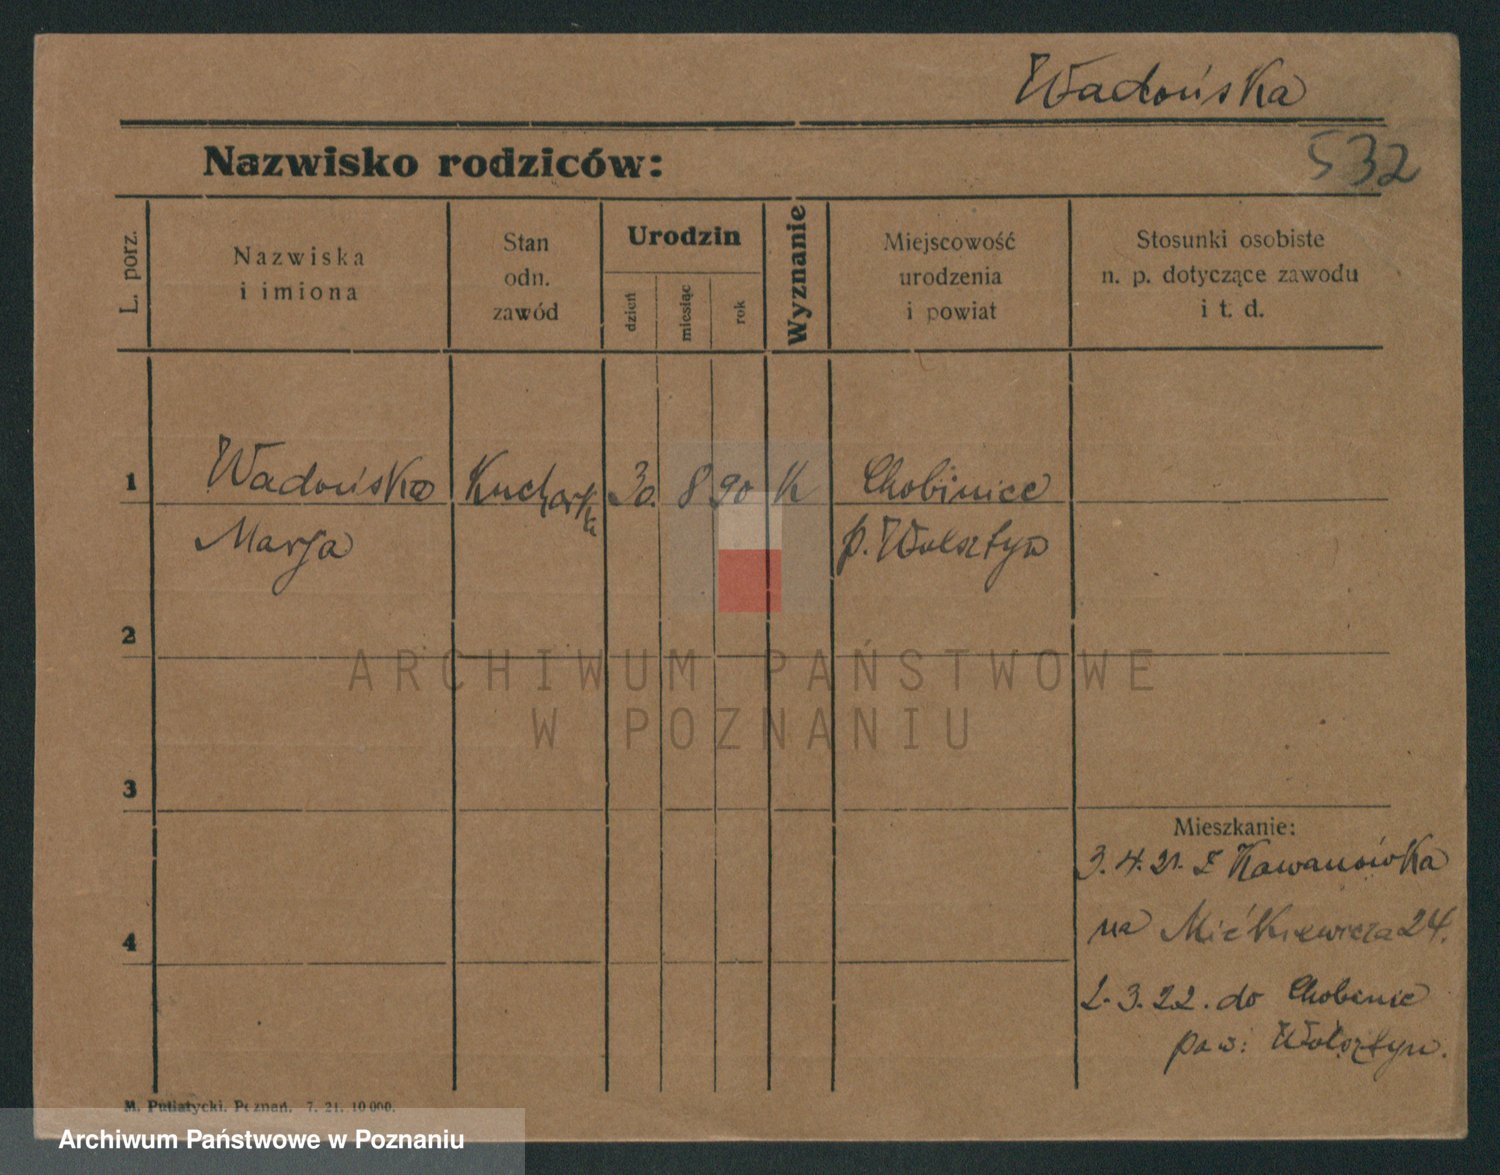 Wadońska
532
Nazwisko rodziców:
L. porz.
Nazwiska
i imiona
Stan
odn.
zawód
Urodzin
dzień
miesiąc
rok
Wyznanie
Miejscowość
urodzenia
i powiat
Stosunki osobiste
n. p. dotyczące zawodu
i t. d.
1
Wadońska
Kucharka
30.
8
90
K
Chobinice
Marja
p. Wolsztyn
2
ARCHIWUM PAŃSTWOWE
W POZNANIU
3
Mieszkanie:
3.4.21. z
na Mićkiewicza 24.
4
2.3.22. do Chobenic
pow: Wolsztyn.
M. Putiatycki. Poznań. 7. 21. 10 000.
Archiwum Państwowe w Poznaniu